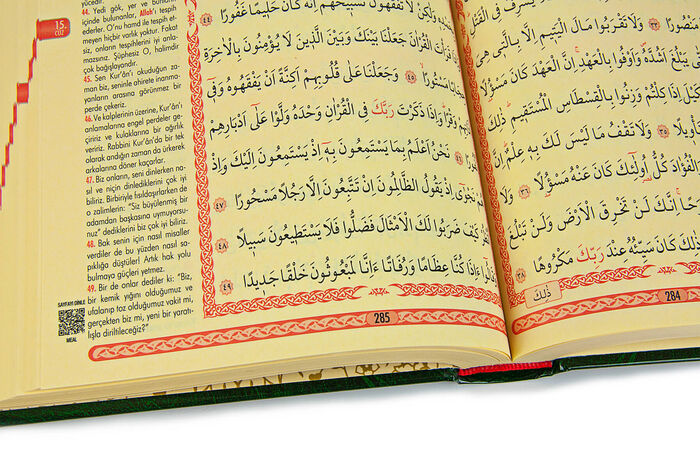 يُسْرِفْ فِى الْقَتْلِ
مَنْصُورًا ٣٣ وَلَا تَقْرَبُوا مَالَ الْيَتِيمِ اِلَّا بِالَّتِى هِىَ
يَبْلُغَ اَشُدَّهُ وَاَوْفُوا بِالْعَهْدِ اِنَّ الْعَهْدَ كَانَ مَسْؤُلًا
كَيْلَ اِذَا كِلْتُمْ وَزِنُوا بِالْقِسْطَاسِ الْمُسْتَقِيمِ ذٰلِكَ
٣٥ وَلَا تَقْفُ مَا لَيْسَ لَكَ بِهِ عِلْمٌ اِنَّ
فُؤَادَ كُلُّ اُولٰئِكَ كَانَ عَنْهُ مَسْؤُلًا ٣٦
اِنَّكَ لَنْ تَخْرِقَ الْاَرْضَ وَلَنْ تَبْلُغَ
كَانَ سَيِّئُهُ عِنْدَ رَبِّكَ مَكْرُوهًا ٣٨
ذٰلِكَ
284
وَلٰكِنْ لَا تَفْقَهُونَ تَسْبِيحَهُمْ اِنَّهُ كَانَ حَلِيمًا غَفُورًا ٤٤
قَرَأْتَ الْقُرْاٰنَ جَعَلْنَا بَيْنَكَ وَبَيْنَ الَّذِينَ لَا يُؤْمِنُونَ بِالْاٰخِرَةِ
مَسْتُورًا ٤٥ وَجَعَلْنَا عَلٰى قُلُوبِهِمْ اَكِنَّةً اَنْ يَفْقَهُوهُ وَفِى
وَقْرًا وَاِذَا ذَكَرْتَ رَبَّكَ فِى الْقُرْاٰنِ وَحْدَهُ وَلَّوْا عَلٰى اَدْبَارِهِمْ
٤٦ نَحْنُ اَعْلَمُ بِمَا يَسْتَمِعُونَ بِهِ اِذْ يَسْتَمِعُونَ اِلَيْكَ وَاِذْ
نَجْوٰى اِذْ يَقُولُ الظَّالِمُونَ اِنْ تَتَّبِعُونَ اِلَّا رَجُلًا مَسْحُورًا ٤٧
كَيْفَ ضَرَبُوا لَكَ الْاَمْثَالَ فَضَلُّوا فَلَا يَسْتَطِيعُونَ سَبِيلًا ٤٨
ءَاِذَا كُنَّا عِظَامًا وَرُفَاتًا ءَاِنَّا لَمَبْعُوثُونَ خَلْقًا جَدِيدًا ٤٩
285
15.
CÜZ
yücedir.
44. Yedi gök, yer ve bunların
içinde bulunanlar, Allah'ı tespih
ederler. O'nu hamd ile tespih et-
meyen hiçbir varlık yoktur. Fakat
siz, onların tespihlerini iyi anla-
mazsınız. Şüphesiz O, halimdir
çok bağışlayandır.
45. Sen Kur'ân'ı okuduğun za-
man biz, seninle ahirete inanma-
yanların arasına görünmez bir
perde çekeriz.
46. Ve kalplerinin üzerine, Kur'ân'ı
anlamalarına engel perdeler ge-
çiririz ve kulaklarına bir ağırlık
veririz. Rabbini Kur'ân'da bir tek
olarak andığın zaman da ürkerek
arkalarına döner kaçarlar.
47. Biz onların, seni dinlerken na-
sıl ve niçin dinlediklerini çok iyi
biliriz. Birbiriyle fısıldaşırlarken de
o zalimlerin: "Siz büyülenmiş bir
adamdan başkasına uymuyorsu-
nuz" dediklerini biz çok iyi biliriz.
48. Bak senin için nasıl misaller
verdiler de bu yüzden nasıl sa-
pıklığa düştüler! Artık hak yolu
bulmaya güçleri yetmez.
49. Bir de onlar dediler ki: "Biz,
bir kemik yığını olduğumuz ve
ufalanıp toz olduğumuz vakit mi,
gerçekten biz mi, yeni bir yaratı-
lışla diriltileceğiz?"
SAYFAYI DİNLE
MEAL